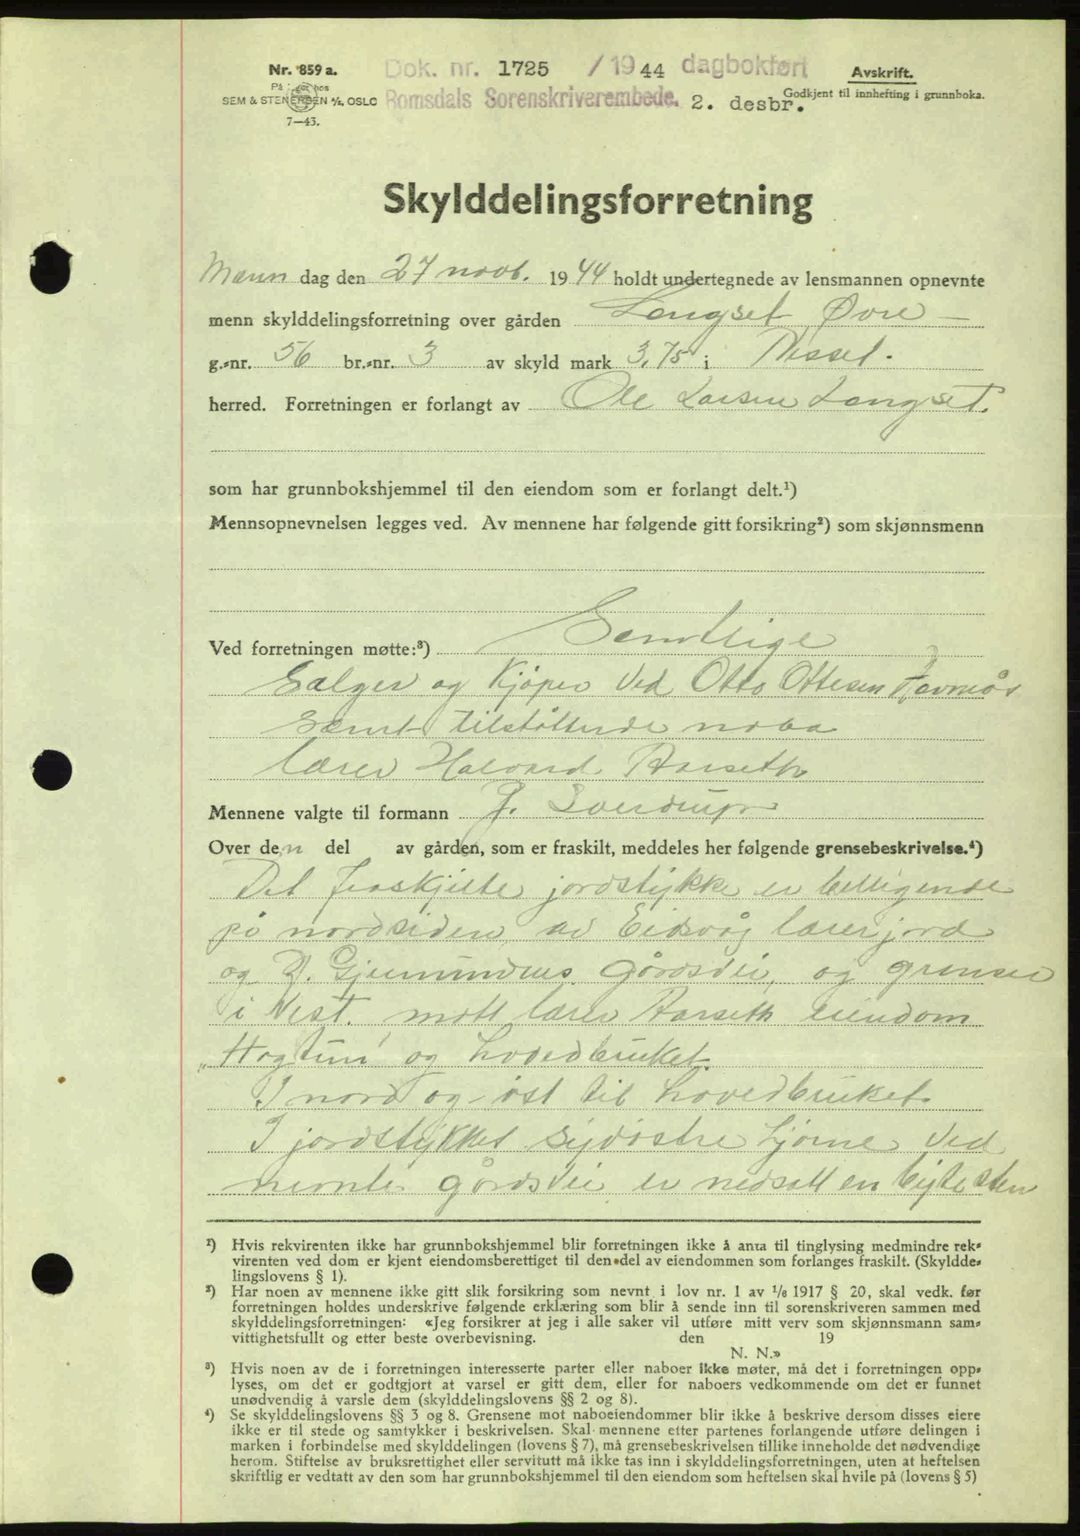 Nr. 859 a.
Dok. nr. 1725 / 1944 dagbokført
Avskrift.
På hos
SEM & STENERSEN A/S, OSLO
Romsdals Sorenskriverembede. 2. desbr.
Godkjent til innhefting i grunnboka.
7—43.
Skylddelingsforretning
Mann dag den 27 novb. 1944 holdt undertegnede av lensmannen opnevnte
menn skylddelingsforretning over gården Langset Øvre —
g.-nr. 56 br.-nr. 3 av skyld mark 3,75 i Nesset.
herred. Forretningen er forlangt av Ole Larsen Langset.
som har grunnbokshjemmel til den eiendom som er forlangt delt.¹)
Mennsopnevnelsen legges ved. Av mennene har følgende gitt forsikring²) som skjønnsmenn
Samtlige
Ved forretningen møtte:³)
Selger og Kjøper ved Otto Ottesen
samt tilstøttende nabo
lærer Halvard Aarseth
Mennene valgte til formann J. Sverdrup
Over den del av gården, som er fraskilt, meddeles her følgende grensebeskrivelse.⁴)
Det fraskjilte jordstykke er beliggende
på nordsiden av Eidsvåg lærerjord
og Gjermundnes gårdsvei, og grenser
i Vest. mott lærer Aarseth eiendom
„Hagtun" og hovedbruket.
I nord og øst til hovedbruket.
I jordstykket sydøstre hjørne ved
nevnte gårdsvei er nedsatt en bytesten
¹) Hvis rekvirenten ikke har grunnbokshjemmel blir forretningen ikke å anta til tinglysing medmindre rek-
virenten ved dom er kjent eiendomsberettiget til den del av eiendommen som forlanges fraskilt. (Skyldde-
lingslovens § 1).
²) Har noen av mennene ikke gitt slik forsikring som nevnt i lov nr. 1 av 1/6 1917 § 20, skal vedk. før
forretningen holdes underskrive følgende erklæring som blir å sende inn til sorenskriveren sammen med
skylddelingsforretningen: «Jeg forsikrer at jeg i alle saker vil utføre mitt verv som skjønnsmann sam-
vittighetsfullt og etter beste overbevisning. den 19
N. N.»
³) Hvis noen av de i forretningen interesserte parter eller naboer ikke møter, må det i forretningen opp-
lyses, om det er godtgjort at varsel er gitt dem, eller for naboers vedkommende om det er funnet
unødvendig å varsle dem (skylddelingslovens §§ 2 og 8).
⁴) Se skylddelingslovens §§ 3 og 8. Grensene mot naboeiendommer blir ikke å beskrive dersom disses eiere
ikke er til stede og samtykker i beskrivelsen. Skal mennene etter partenes forlangende utføre delingen i
marken i forbindelse med skylddelingen (lovens § 7), må grensebeskrivelsen tillike inneholde det nødvendige
herom. Stiftelse av bruksrettighet eller servitutt må ikke tas inn i skylddelingsforretningen, uten at heftelsen
skriftlig er vedtatt av den som har grunnbokshjemmel til den eiendom som heftelsen skal hvile på (lovens § 5)